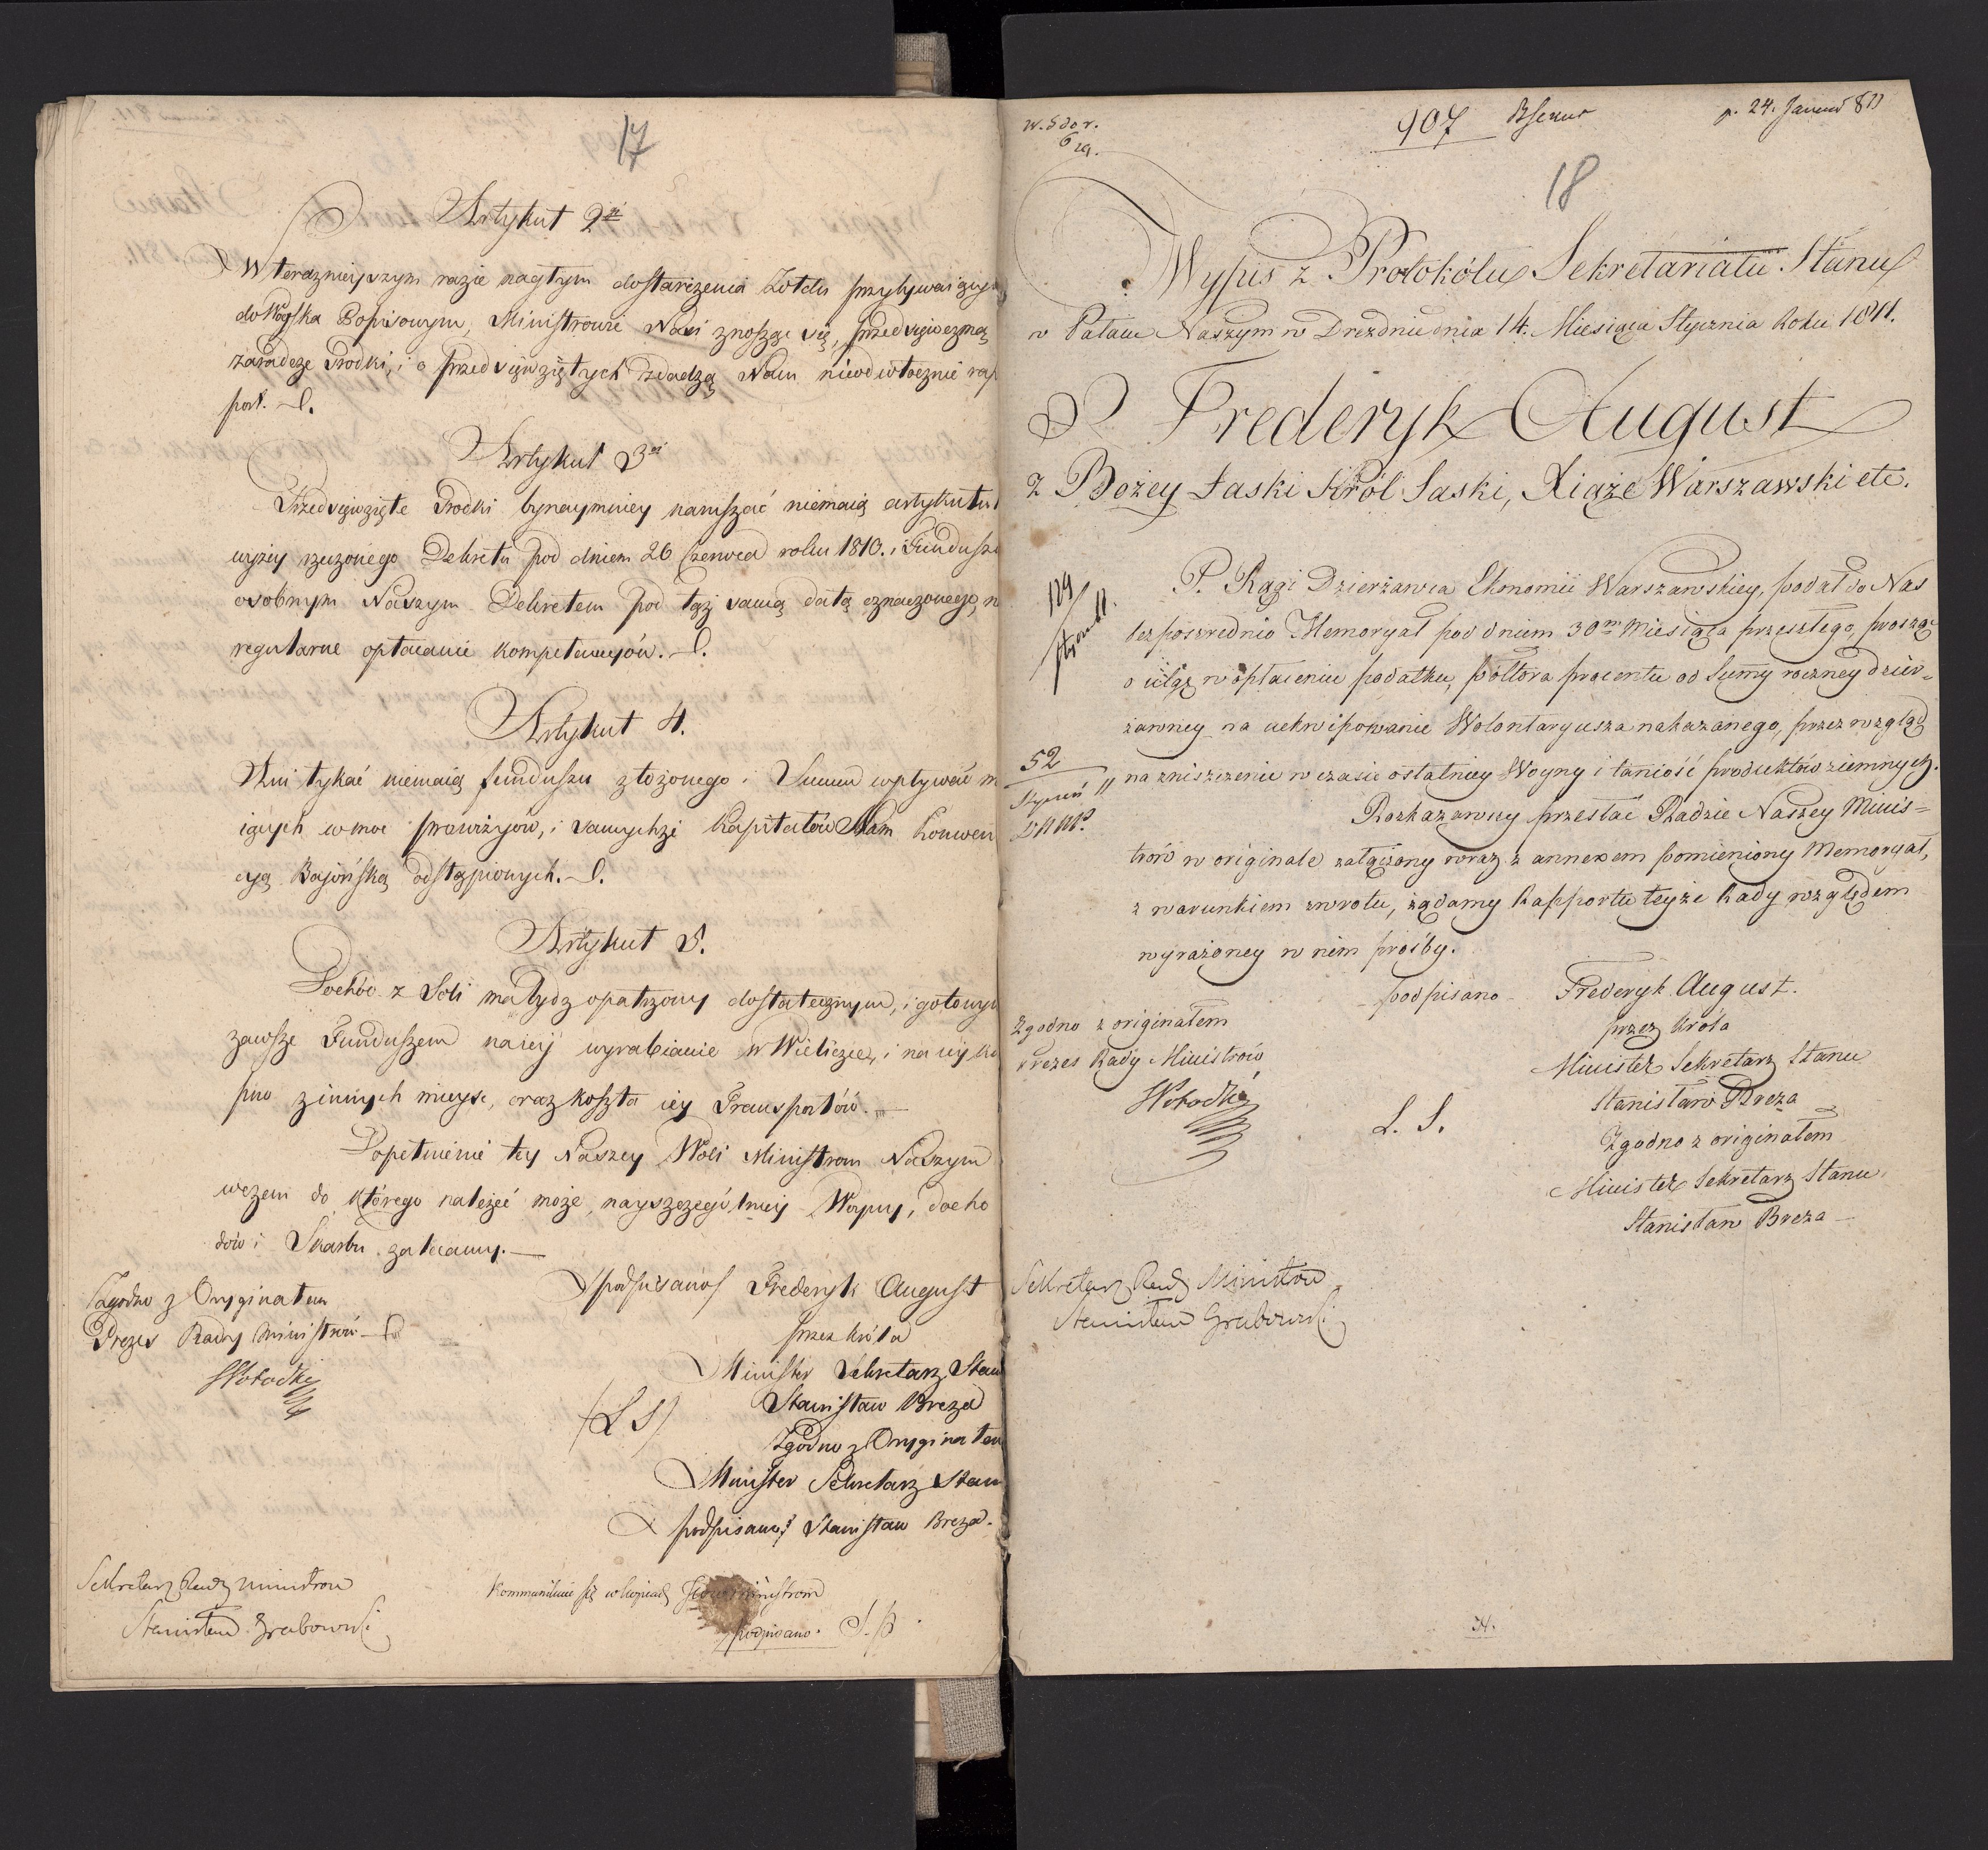 17
Artykuł 2gi
W teraznieyszym razie nagłym dostarczenia Żołdu przybywaiącym
do Woyska Popisowym, Ministrowie Nasi znosząc się, przedsięwezmą
zaradcze środki, i o przedsięwziętych zdadzą Nam nieodwłocznie rap
port.
Artykuł 3ci
Przedsięwzięte środki bynaymniey naruszać niemaią artykułu
wyżey rzeczonego Dekretu pod dniem 26 Czerwca roku 1810. i Fundusz
osobnym Naszym Dekretem pod tąż samą datą oznaczonego, n
regularne opłacanie kompetencyów.
Artykuł 4.
Ani tykać niemaią funduszu złożonego i Summ wpływać m
iących w moc prowizyów, i samychże Kapitałów Nam Konwen
cyą Bajońską odstąpionych.
Artykuł 5.
Dochód z Soli ma bydz opatrzony dostatecznym, i gotowym
zawsze Funduszem na iey wyrabianie w Wieliczce, i na iey ku
pno z innych mieysc, oraz koszta iey Transportów.
Dopełnienie tey Naszey Woli Ministrom Naszym
wczem do którego należeć może, nayszczególniey Woyny, docho
dów i Skarbu zalecamy.
podpisano/ Frederyk August
przez Króla
Minister Sekretarz Stanu
Stanisław Breza
(L S)
Zgodno z Oryginałem
Minister Sekretarz Stanu
podpisano/ Stanisław Breza.
Zgodno z Oryginałem
Prezes Rady Ministrów
SPotocki
Sekretarz Rady Ministrow
Stanisław Grabowski
Kommunikuie się w kopiach Ministrom
podpisano. S. P.
907
p. 24. Januar 811
18
Wypis z Protokólu Sekretariatu Stanu
w Pałacu Naszym w Dreźdnie dnia 14. Miesiąca Stycznia Roku 1811.
Frederyk August
z Bożey Łaski Król Saski, Xiąże Warszawski etc.
129
P. Rązi Dzierżawca Ekonomii Warszawskiey, podał do Nas
bezpośrednio Memoryał pod dniem 30m Miesiąca przeszłego, prosząc
o ulgę w opłaceniu podatku, półtora procentu od Summy roczney dzier=
żawney na uekwipowanie Wolontaryusza nakazanego, przez wzgląd
na zniszczenie w czasie ostatniey Woyny i taniość produktów ziemnych.
52
Styczeń 11
Rozkazawszy przesłać Radzie Naszey Minis=
trów w originale załączony wraz z annexem pomieniony Memoryał,
z warunkiem zwrotu, żądamy Rapportu teyże Rady względem
wyrażoney w nim prośby.
podpisano Frederyk August.
przez Króla
Minister Sekretarz Stanu
Stanisław Breza
L. S.
Zgodno z originałem
Minister Sekretarz Stanu
Stanisław Breza
Zgodno z originałem
Prezes Rady Ministrów
SPotocki
Sekretarz Rady Ministrow
Stanisław Grabowski